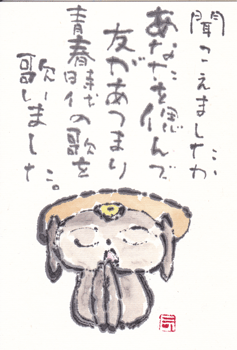 聞こえましたか
あなたを偲んで
友があつまり
青春時代の歌を
歌いました。